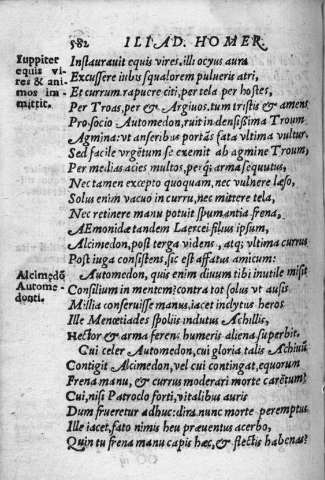 582 ILIAD. HOMER.
Iuppiter
equis vi-
res & ani-
mos im-
mittit.
Instaurauit equis vires, illi ocyus aura
Excussere iubis squalorem pulueris atri,
Et currum rapuere citi, per tela per hostes,
Per Troas, per & Argiuos. tum tristis & amens
Pro socio Automedon, ruit in densissima Troum
Agmina: vt anseribus portās fata vltima vultur.
Sed facile vrgētum se exemit ab agmine Troum,
Per medias acies multos, per q; arma sequutus,
Nec tamen excepto quoquam, nec vulnere læso,
Solus enim vacuo in curru, nec mittere tela,
Nec retinere manu potuit spumantia frena,
AEmonidæ tandem Laercei filius ipsum,
Alcimedon, post terga videns, atq; vltima currus
Post iuga consistens, sic est affatus amicum:
Alcimedō
Autome-
donti.
Automedon, quis enim diuum tibi inutile misit
Consilium in mentem? contra tot solus vt ausis
Millia conseruisse manus. iacet inclytus heros
Ille Menœtiades spoliis indutus Achillis,
Hector & arma ferens humeris aliena superbit.
Cui celer Automedon, cui gloria talis Achiuū
Contigit Alcimedon, vel cui contingat, equorum
Frena manu, & currus moderari morte carētum?
Cui, nisi Patroclo forti, vitalibus auris
Dum frueretur adhuc: dira nunc morte peremptus
Ille iacet, fato nimis heu præuentus acerbo,
Quin tu frena manu capis hæc, & flectis habenas?